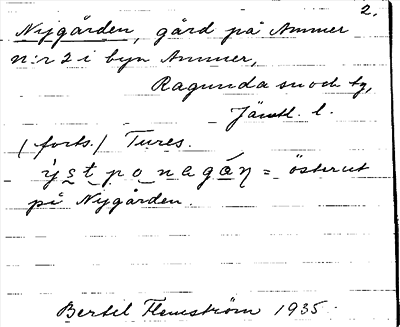 2.
Nygården, gård på Ammer
n:r 2 i byn Ammer,
Ragunda sn och tg,
Jämtl. l.
(forts.) Tures.
= österut
på Nygården.
Bertil Flemström 1935.